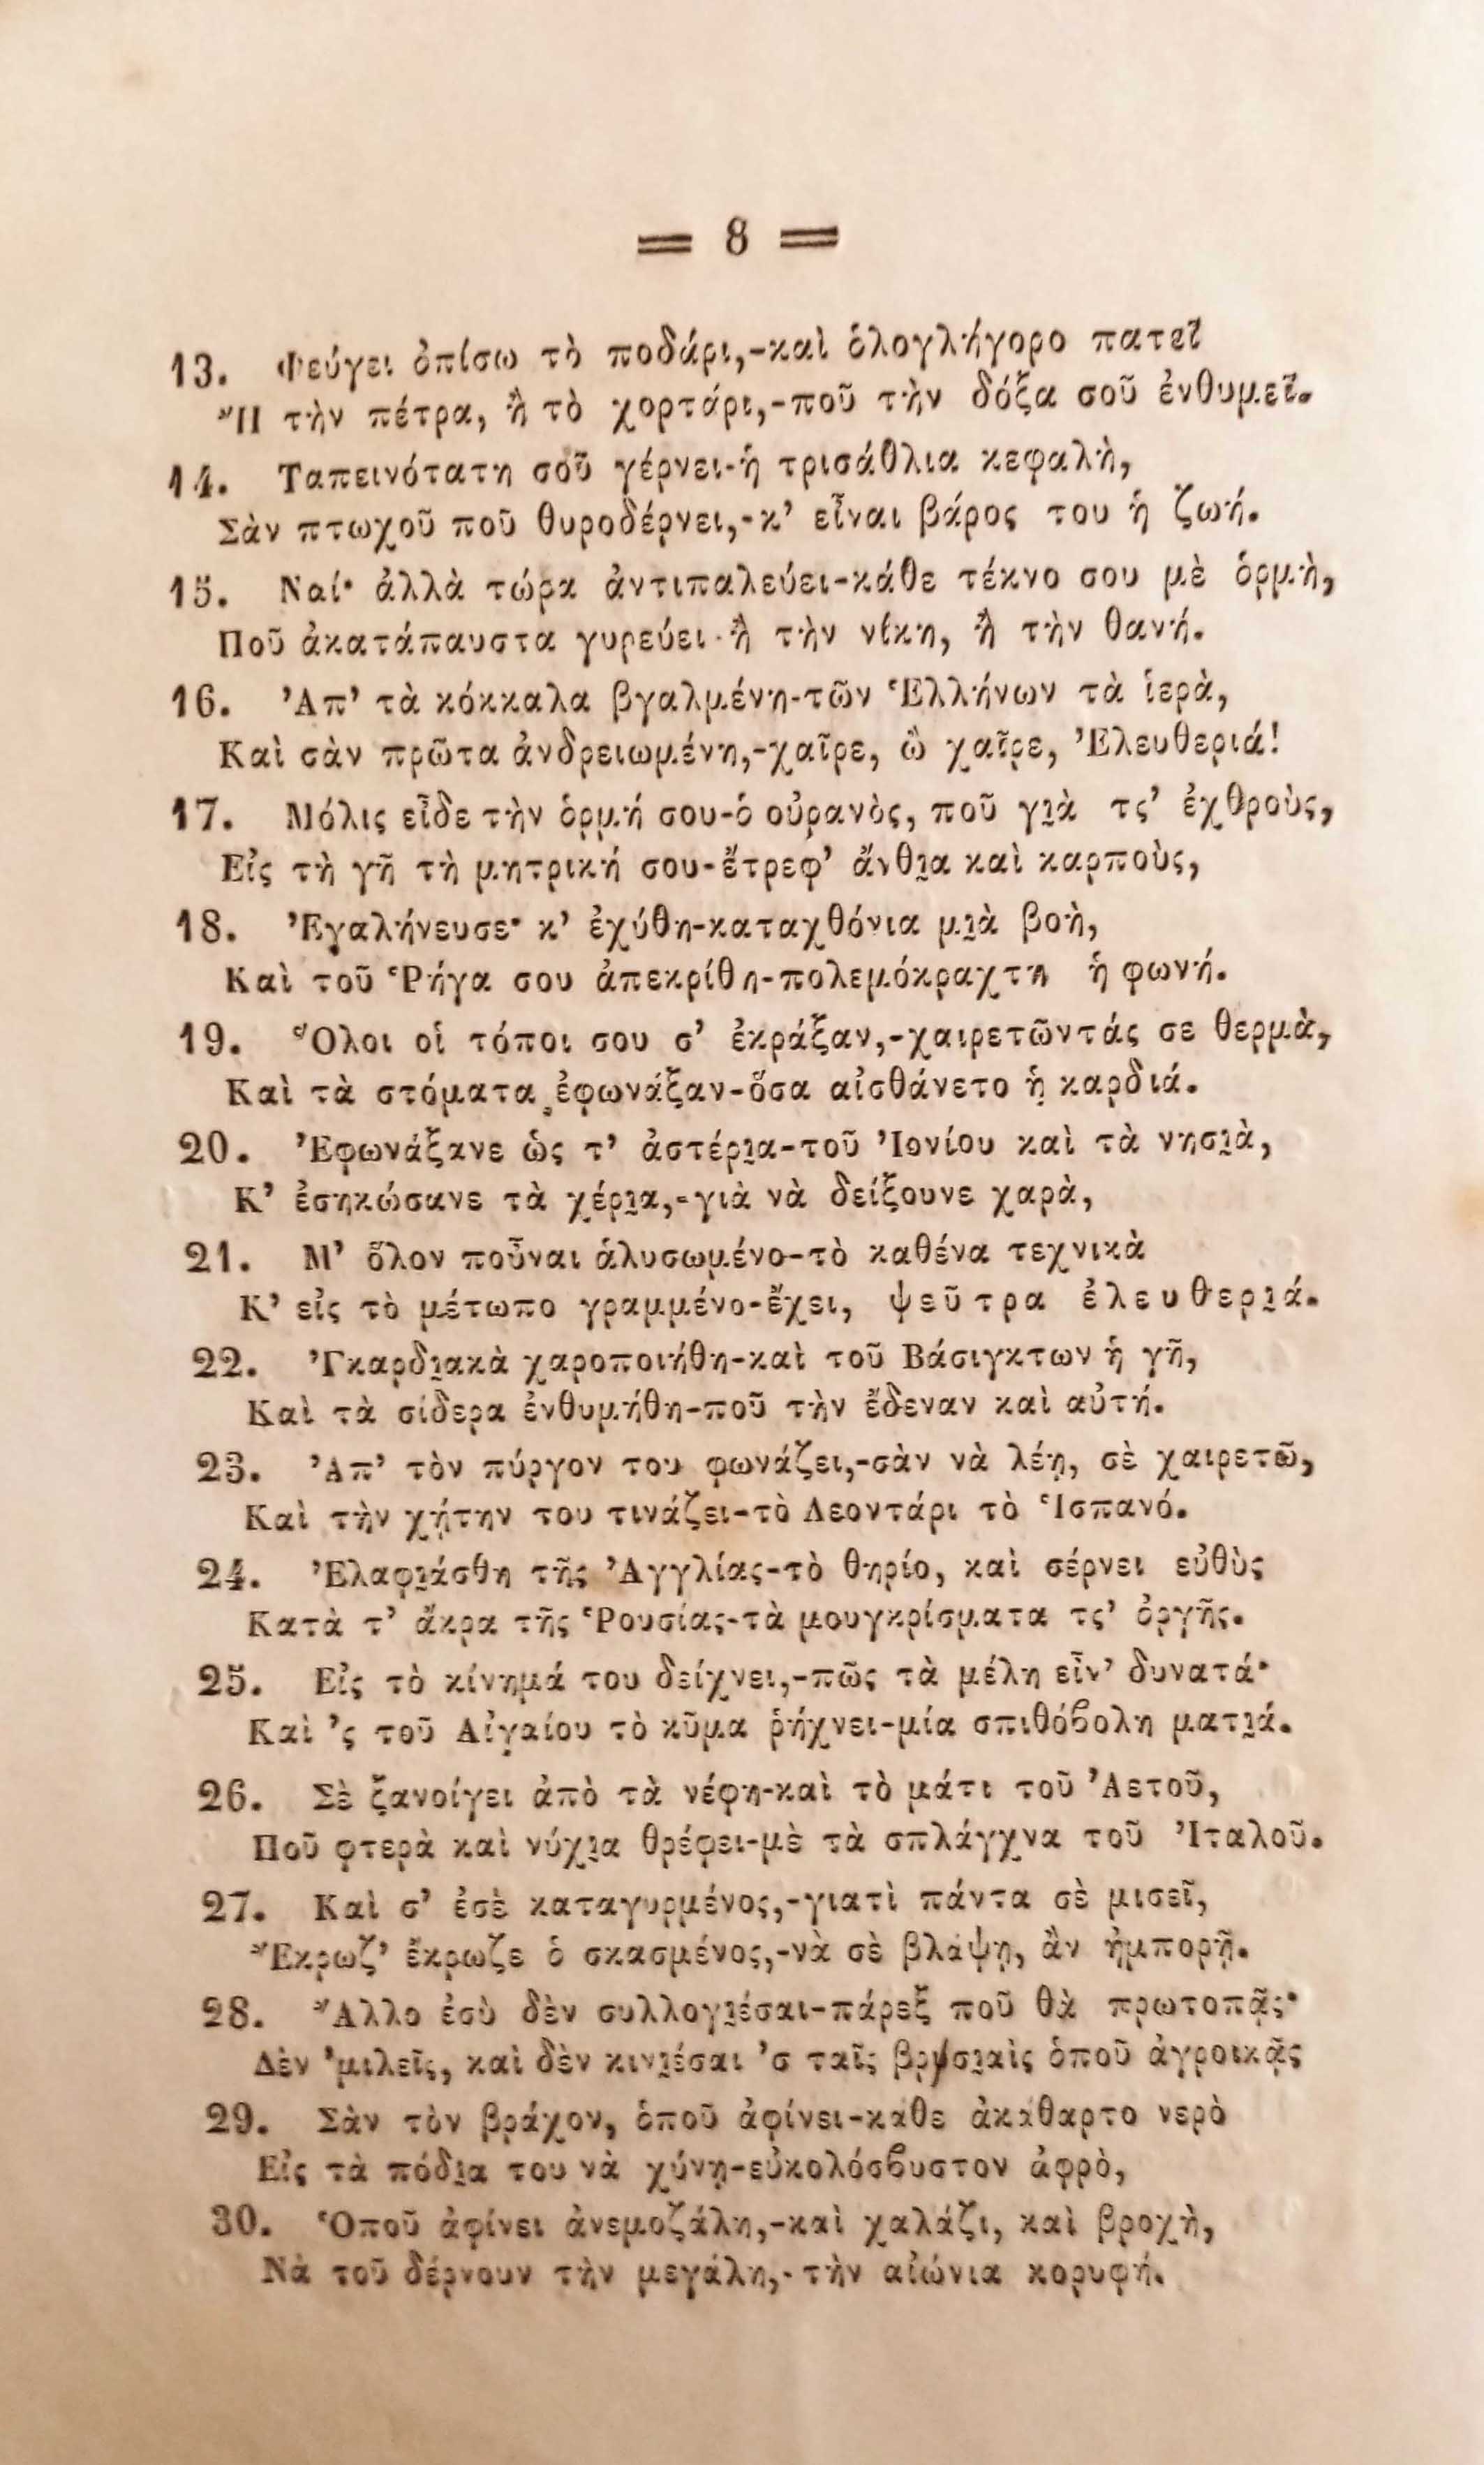 = 8 =
13. Φεύγει ὀπίσω τὸ ποδάρι,-καὶ ὁλογλήγορο πατεῖ
Ἢ τὴν πέτρα, ἢ τὸ χορτάρι,-ποῦ τὴν δόξα σοῦ ἐνθυμεῖ.
14. Ταπεινότατη σοῦ γέρνει-ἡ τρισάθλια κεφαλὴ,
Σὰν πτωχοῦ ποῦ θυροδέρνει,-κ’ εἶναι βάρος του ἡ ζωή.
15. Ναί· ἀλλὰ τώρα ἀντιπαλεύει-κάθε τέκνο σου μὲ ὁρμὴ,
Ποῦ ἀκατάπαυστα γυρεύει-ἢ τὴν νίκη, ἢ τὴν θανή.
16. Ἀπ’ τὰ κόκκαλα βγαλμένη-τῶν Ἑλλήνων τὰ ἱερὰ,
Καὶ σὰν πρῶτα ἀνδρειωμένη,-χαῖρε, ὢ χαῖρε, Ἐλευθεριά!
17. Μόλις εἶδε τὴν ὁρμή σου-ὁ οὐρανὸς, ποῦ γι̯ὰ τς’ ἐχθροὺς,
Εἰς τὴ γῆ τὴ μητρική σου-ἔτρεφ’ ἄνθι̯α καὶ καρποὺς,
18. Ἐγαλήνευσε· κ’ ἐχύθη-καταχθόνια μι̯ὰ βοὴ,
Καὶ τοῦ Ῥήγα σου ἀπεκρίθη-πολεμόκραχτη ἡ φωνή.
19. Ὅλοι οἱ τόποι σου σ’ ἐκράξαν,-χαιρετῶντάς σε θερμὰ,
Καὶ τὰ στόματα ἐφωνάξαν-ὅσα αἰσθάνετο ἡ καρδιά.
20. Ἐφωνάξανε ὡς τ’ ἀστέρι̯α-τοῦ Ἰονίου καὶ τὰ νησι̯ὰ,
Κ’ ἐσηκώσανε τὰ χέρι̯α,-γιὰ νὰ δείξουνε χαρὰ,
21. Μ’ ὅλον ποὖναι ἁλυσωμένο-τὸ καθένα τεχνικὰ
Κ’ εἰς τὸ μέτωπο γραμμένο-ἔχει, ψεῦτρα ἐλευθερι̯ά.
22. Ἐγκαρδι̯ακὰ χαροποιήθη-καὶ τοῦ Βάσιγκτων ἡ γῆ,
Καὶ τὰ σίδερα ἐνθυμήθη-ποῦ τὴν ἔδεναν καὶ αὐτή.
23. Ἀπ’ τὸν πύργον του φωνάζει,-σὰν νὰ λέῃ, σὲ χαιρετῶ,
Καὶ τὴν χήτην του τινάζει-τὸ Λεοντάρι τὸ Ἱσπανό.
24. Ἐλαφι̯άσθη τῆς Ἀγγλίας-τὸ θηρίο, καὶ σέρνει εὐθὺς
Κατὰ τ’ ἄκρα τῆς Ῥουσίας-τὰ μουγκρίσματα τς’ ὀργῆς.
25. Εἰς τὸ κίνημά του δείχνει,-πῶς τὰ μέλη εἶν’ δυνατά·
Καὶ ’ς τοῦ Αἰγαίου τὸ κῦμα ῥήχνει-μία σπιθόϐολη ματι̯ά.
26. Σὲ ξανοίγει ἀπὸ τὰ νέφη-καὶ τὸ μάτι τοῦ Ἀετοῦ,
Ποῦ φτερὰ καὶ νύχι̯α θρέφει-μὲ τὰ σπλάγχνα τοῦ Ἰταλοῦ.
27. Καὶ σ’ ἐσὲ καταγυρμένος,-γιατὶ πάντα σὲ μισεῖ,
Ἔκρωζ’ ἔκρωζε ὁ σκασμένος,-νὰ σὲ βλάψῃ, ἂν ἠμπορῇ.
28. Ἄλλο ἐσὺ δὲν συλλογι̯έσαι-πάρεξ ποῦ θὰ πρωτοπᾷς·
Δὲν ’μιλεῖς, καὶ δὲν κινι̯έσαι ’σ ταῖς βρυσι̯αὶς ὁποῦ ἀγροικᾷς
29. Σὰν τὸν βράχον, ὁποῦ ἀφίνει-κάθε ἀκάθαρτο νερὸ
Εἰς τὰ πόδι̯α του νὰ χύνῃ-εὐκολόσϐυστον ἀφρὸ,
30. Ὁποῦ ἀφίνει ἀνεμοζάλη,-καὶ χαλάζι, καὶ βροχὴ,
Νὰ τοῦ δέρνουν τὴν μεγάλη,-τὴν αἰώνια κορυφή.